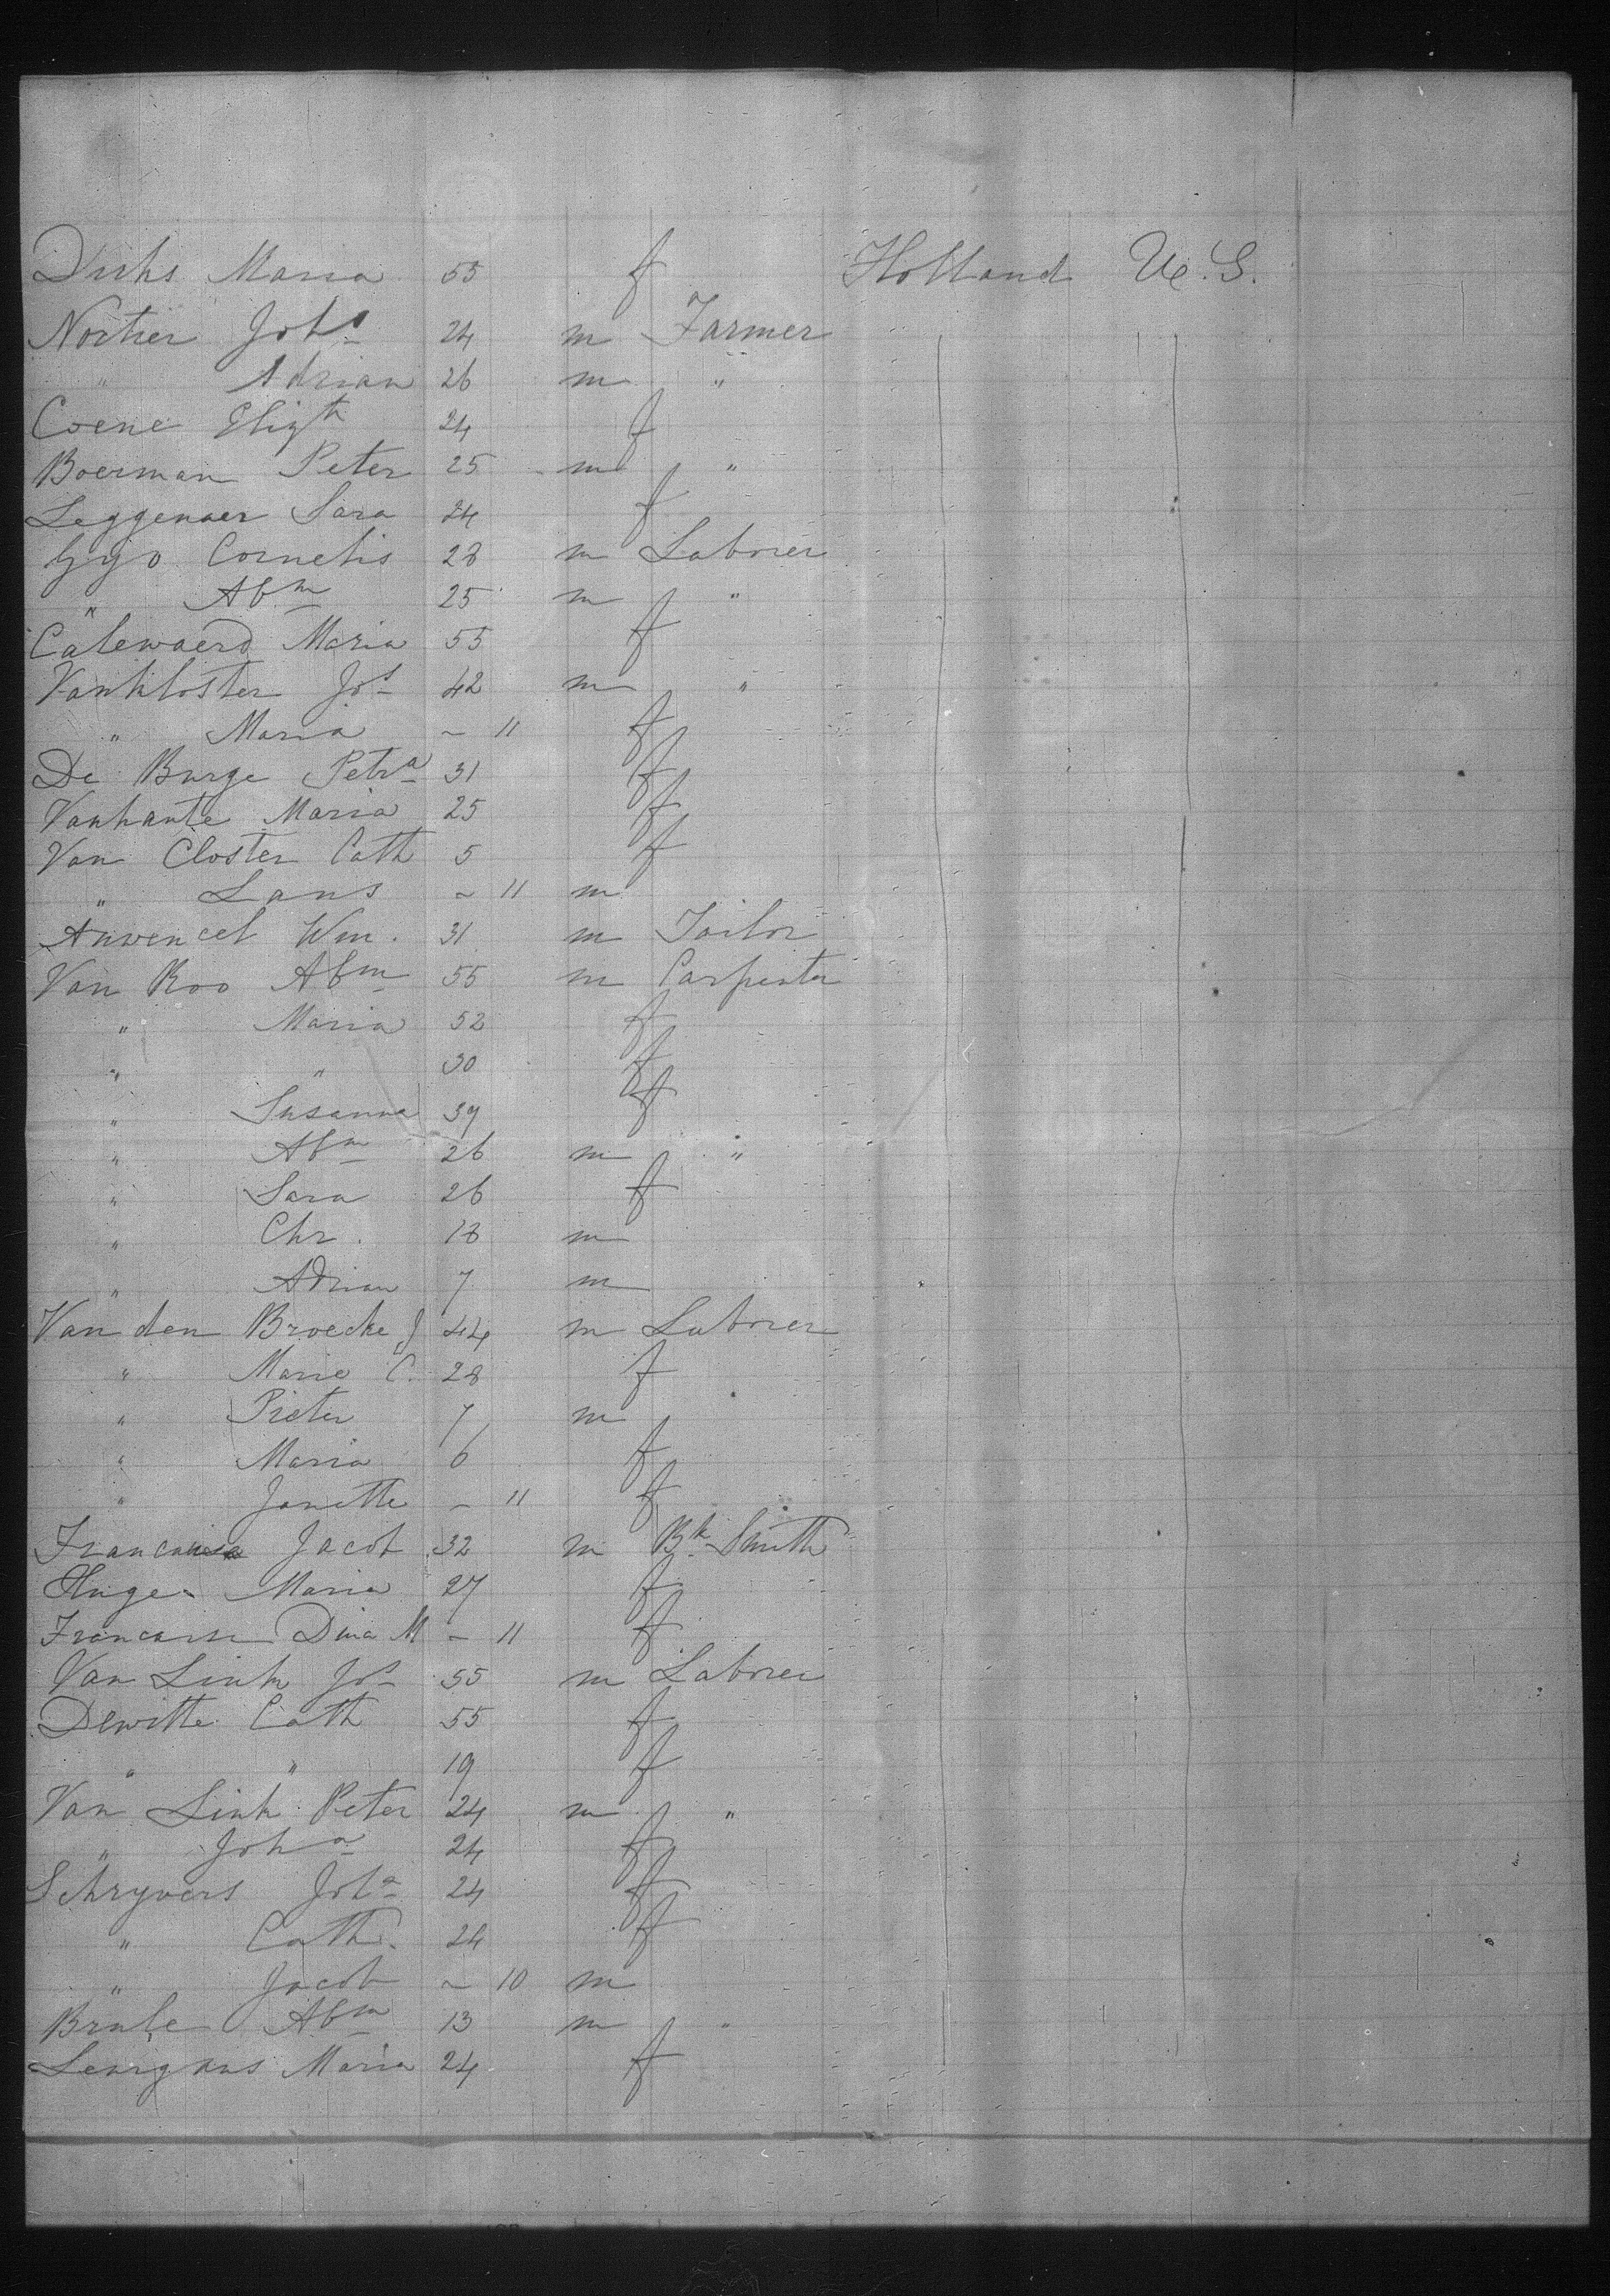 Dirks Maria 55 f Holland U.S.
Nortier Joh<sup>s</sup> 24 m Farmer
" Adrian 26 m "
Coene Eliz<sup>th</sup> 24 f
Boerman Peter 25 m "
Leggenaer Sara 24 f
Gyo Cornelis 28 m Laborer
" Ab<sup>m</sup> 25 m "
Calewaerd Maria 55 f
Vanhloster Jos 42 m "
" Maria ~ 11 f
De Burge Petr<sup>a</sup> 31 f
Vanhante Maria 25 f
Van Closter Cath 5 f
" Laus ~ 11 m
Anvencel Wm. 31 m Tailor
Van Roo Ab<sup>m</sup> 55 m Carpenter
" Maria 52 f
" " 30 f
" Susanna 39 f
" Ab<sup>m</sup> 26 m "
" Sara 26 f
" Chr. 18 m
" Adrian 7 m
Van den Broecke J 44 m Laborer
" Marie C. 28 f
" Pieter 7 m
" Maria 6 f
" Janette - 11 f
Jacob 32 m B<sup>k</sup> Smith
Huge Maria 27 f
Dina M - 11 f
Van Link Jos 55 m Laborer
Dewitte Cath 55 f
" " 19 f
Van Link Peter 24 m "
" Joh<sup>a</sup> 24 f
Schryvers Joh<sup>a</sup> 24 f
" Cath. 24 f
" Jacob ~ 10 m
Brule Ab<sup>m</sup> 13 m "
Maria 24 f